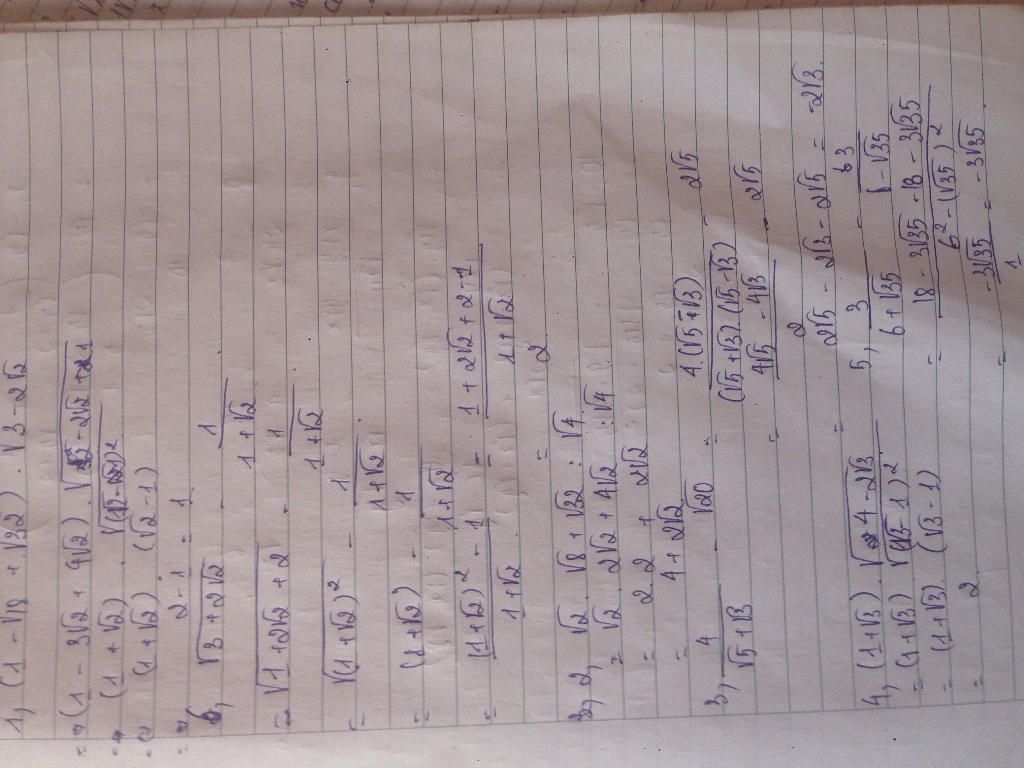 1, (1 - √18 + √32) . √3 - 2√2
= (1 - 3√2 + 4√2) . √2 - 2√2 + 1
= (1 + √2) . √(√2 - 1)²
= (1 + √2) (√2 - 1)
= 2 - 1 = 1
√3 + 2√2 - 1/(1 + √2)
= √1 + 2√2 + 2 - 1/(1 + √2)
= √(1 + √2)² - 1/(1 + √2)
= (1 + √2) - 1/(1 + √2)
= ((1 + √2)² - 1)/(1 + √2) = (1 + 2√2 + 2 - 1)/(1 + √2)
= 2
2, √2 . √8 + √32 : √4
= √2 . 2√2 + 4√2 : √4
= 2 . 2 + 2√2
= 4 + 2√2
3, 4/(√5 + √3) - √20 = 4(√5 - √3)/((√5 + √3)(√5 - √3)) - 2√5
= (4√5 - 4√3)/2 - 2√5
= 2√5 - 2√3 - 2√5 = -2√3.
4, (1 + √3) . √4 - 2√3
= (1 + √3) √(√3 - 1)²
= (1 + √3) . (√3 - 1)
= 2
5, 3/(6 + √35) - 3/(6 - √35)
= (18 - 3√35 - 18 - 3√35)/(6² - (√35)²)
= -3√35/1 = -3√35